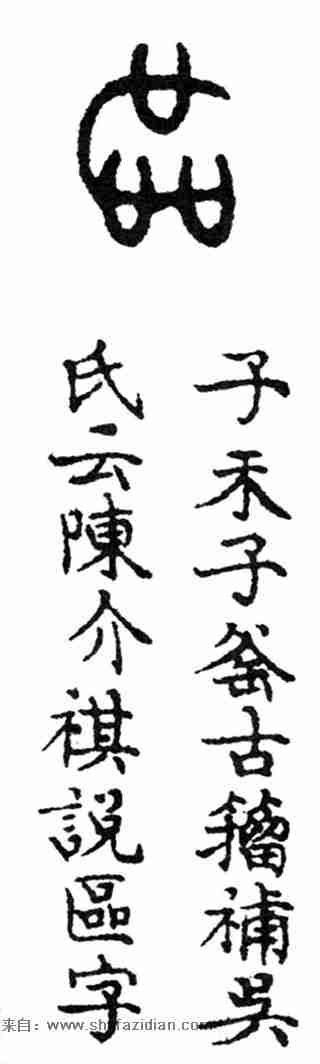 區
子禾子釜古籀補吳
氏云陳介祺說區字
来自：www.shufazidian.com